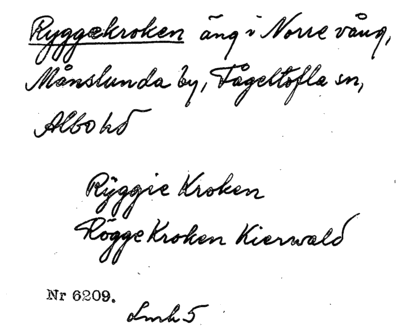 Ryggekroken äng i Norre vång,
Månslunda by, Fågeltofta sn,
Albo hd
Ryggie Kroken
Rögge Kroken Kierwald
Nr 6209.
Lmh 5